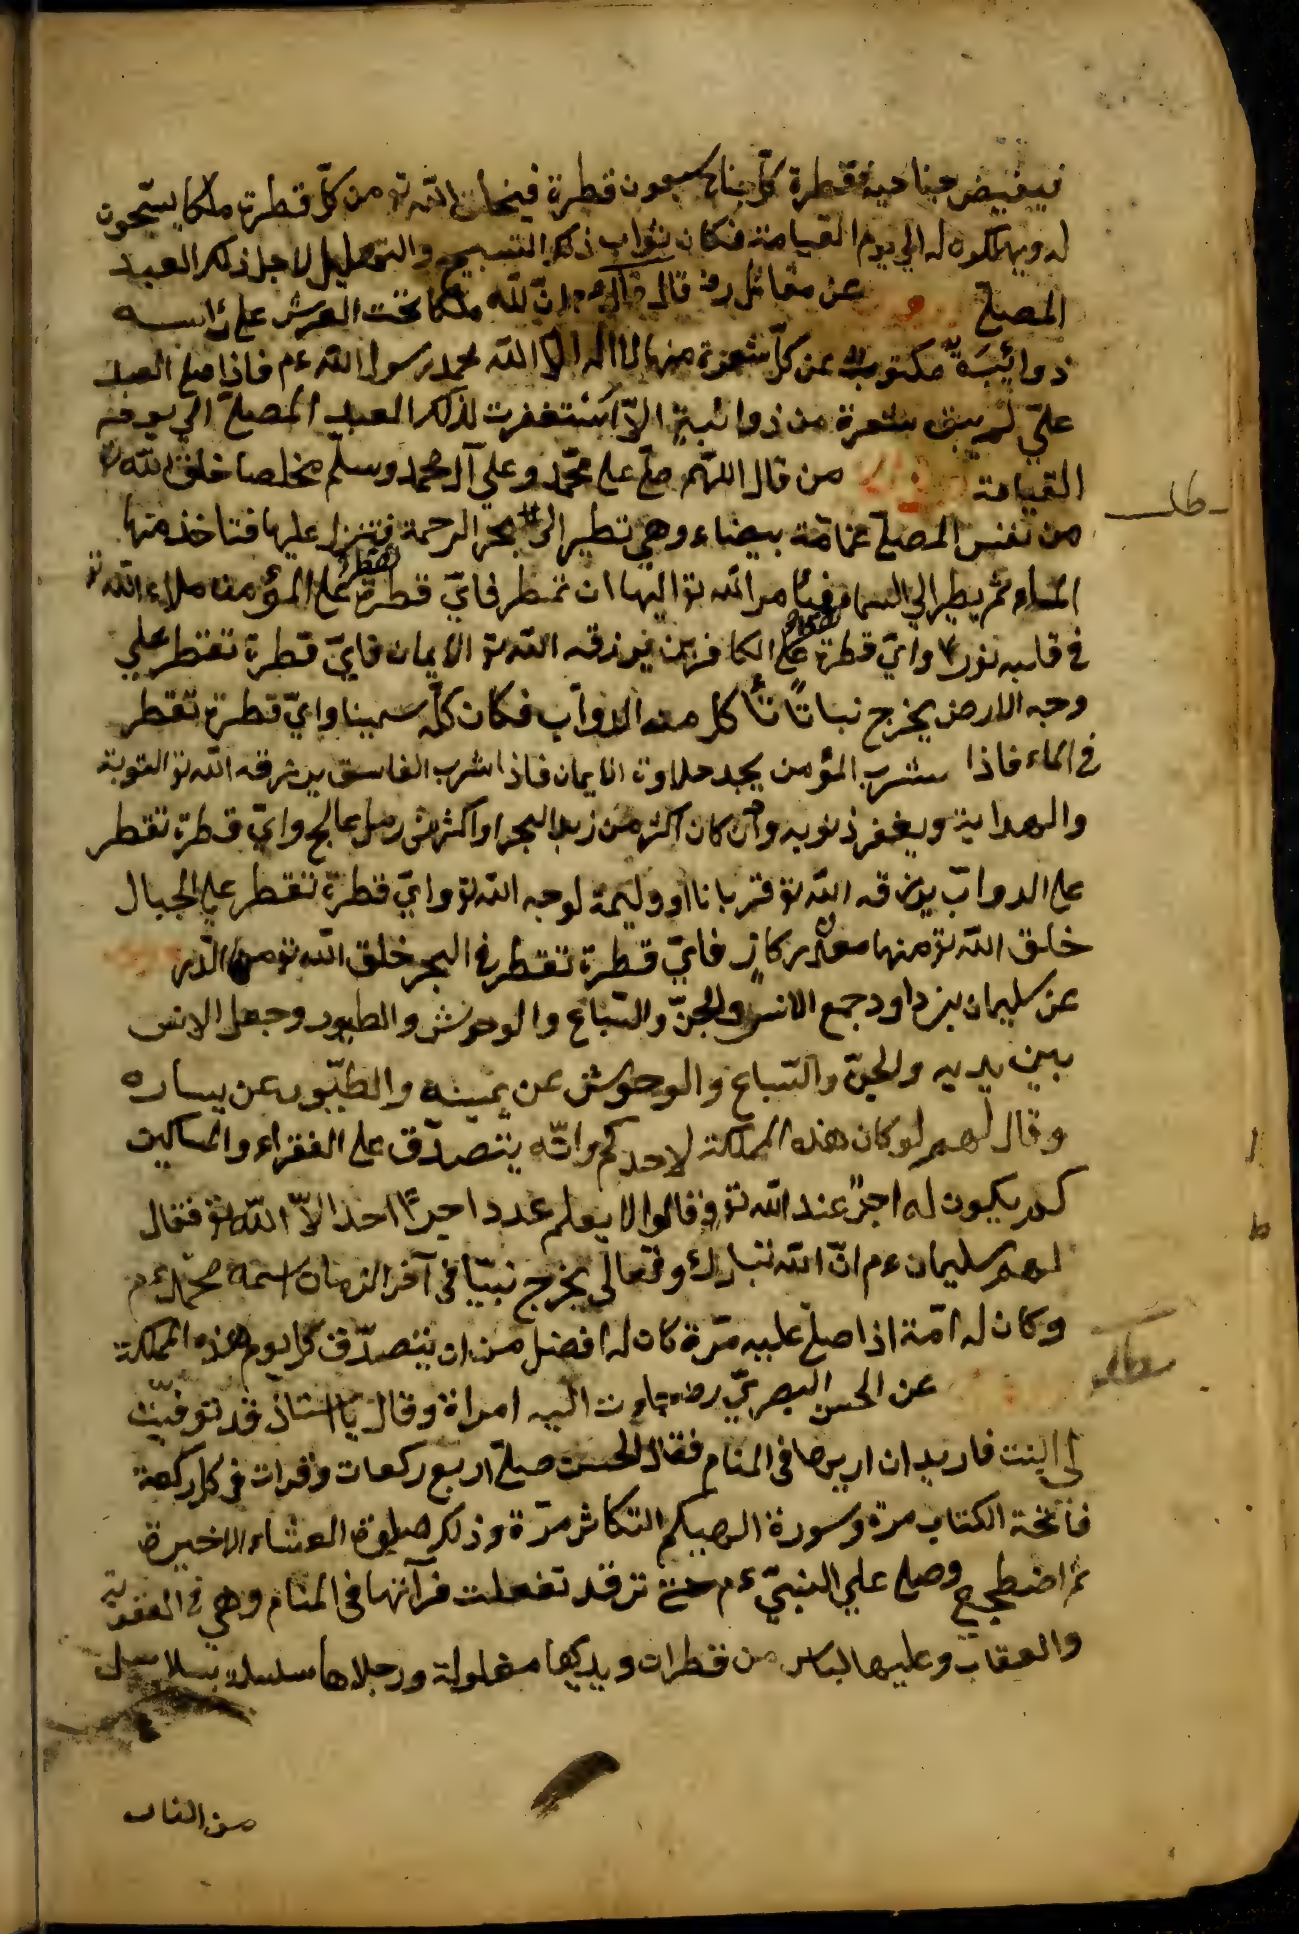 فينفيض جناحيه فقطرة كلّ جناح سبعون قطرة فيخلق اللّه تو من كلّ قطرة ملكا يسبّحون
له ويهلكون له الي يوم القيامة فكان ثواب ذلك التسبيح والتهليل لاجل ذلك العبد
المصلّ عن مقاتل رضـ قال قال ءم انّ للّه ملكا تحت العرش علي رأسه
ذوائبة مكتوب عن كلّ شعرة منها لا اله الا اللّه محمد رسول اللّه ءم فاذا صلي العبد
عليّ لم يبق شعرة من ذوائبة الاّ استغفرت لذلك العبد المصلّ الي يوم
القيامة من قال اللّهم صلّ علي محمّد وعلي آل محمد وسلم مخلصا خلق اللّه تو
من نفس المصلّ غمامة بيضاء وهي تطير الي بحر الرحمة فتنزل عليها فتاخذ منها
الماء ثم يطير الي السماء فيأمر اللّه تو اليها ان تمطر فايّ قطرة تقطر علي المؤمن ملاء اللّه تو
في قلبه نورا وايّ قطرة علي الكافر من يرزقه اللّه تو الايمان فايّ قطرة تقطر علي
وجه الارض يخرج نباتاً تأكل منه الدوآب فكان كلّه سمينا وايّ قطرة تقطر
في الماء فاذا شرب المؤمن يجد حلاوة الايمان فاذا شرب الفاسق يرزقه اللّه تو التوبة
والهداية ويغفر ذنوبه وان كان اكثر من زبد البحر او اكثر من رمل عالج وايّ قطرة تقطر
علي الدوابّ يرزقه اللّه تو قربانا او وليمة لوجه اللّه تو وايّ قطرة تقطر علي الجبال
خلق اللّه تو منها معدن ركاز فايّ قطرة تقطر في البحر خلق اللّه تو منها الدّر
عن سليمان بن داود جمع الانس والجنّ والسّباع والوحوش والطيور وجعل الانس
بين يديه والجنّ والسّباع والوحوش عن يمينه والطيّور عن يساره
وقال لهم لو كان هذه المملكة لاحدكم وانّه يتصدّق علي الفقراء والمساكين
كم يكون له اجرً عند اللّه تو وقالوا لا يعلم عدد اجراً احد الاّ اللّه تو فقال
لهم سليمان ءم انّ اللّه تبارك وتعالي يخرج نبيّا في آخر الزمان اسمه محمّد ءم
وكان له امّة اذا صلّ عليه مرّة كان له افضل من ان يتصدّق كل يوم هذه المملكة
عن الحسن البصريّ رضـ جاءت اليه امراة وقال يا استاذ قد توفيّت
لي البنت فاريد ان اريها في المنام فقال الحسن صلّ اربع ركعات وقرات في كل ركعة
فاتحة الكتاب مرة وسورة الهيكم التكاثر مرّة وذلك صلوة العشاء الاخيرة
ثم اضطجع وصلي علي النبيّ ءم حتي ترقد تفعلت فرآتها في المنام وهي في العقوبة
والعقاب وعليها لباس من قطران ويديها مغلولة ورجلاها سلسلة بسلاسل
من النار